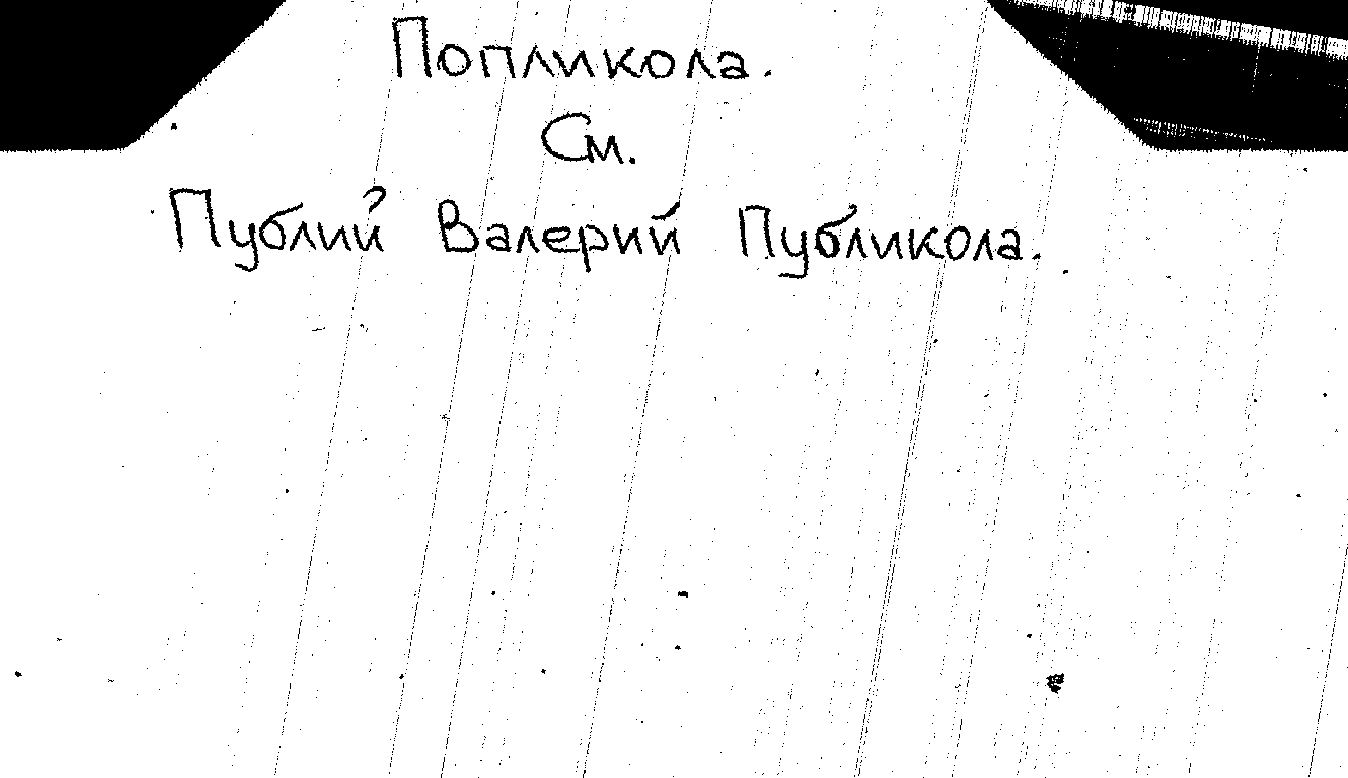 Попликола.
См.
Публий Валерий Публикола.